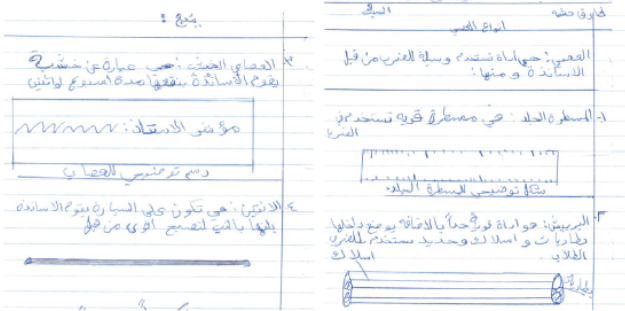 طارق حشمه
أنواع العصي
العصي: هي اداة تستخدم وسيلة للضرب من قبل
الاساتذة و منها:
١- المسطرة الجلد: هي مسطرة قوية تستخدم في
الضرب
شكل توضيحي للمسطرة الجلد
٢- البربيش: هو اداة قوية جداً بالاضافة يوضع داخلها
بطاريات و اسلاك وحديد يستخدم للضرب
الطلاب
اسلاك
بطاريات
يتبع:
٣- العصاي الخشب: هي عبارة عن خشبة
يقوم الأساتذة بنقعها مدة اسبوع او اثنين
الاستاذ:
رسم توضيحي للعصاي
٤- الانتين: هي تكون على السيارة يقوم الاساتذة